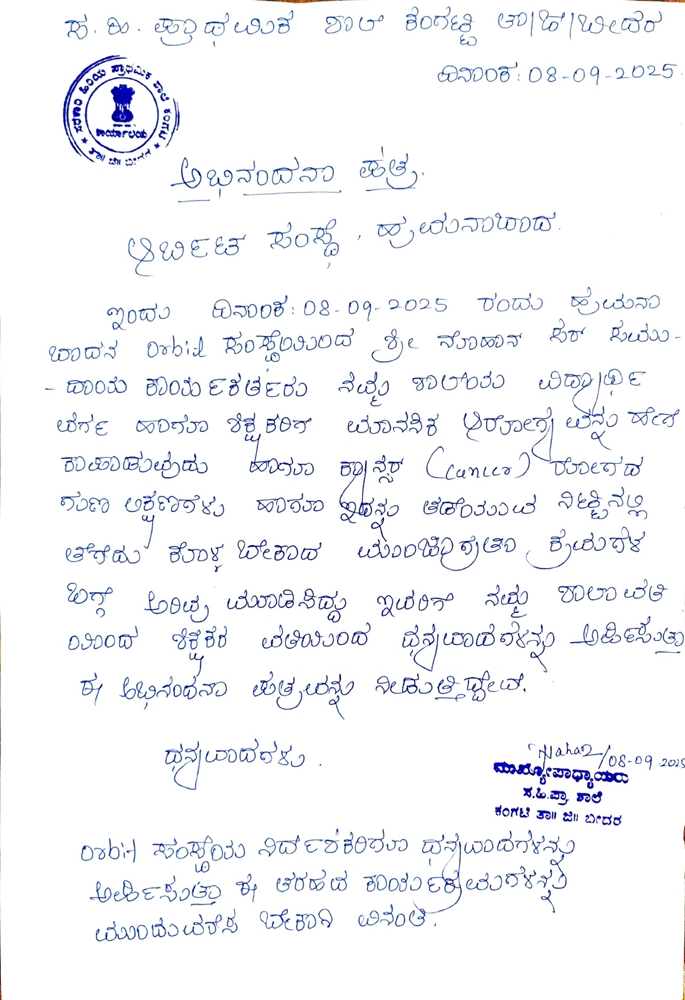 ಸ.ಹಿ.ಪ್ರಾಥಮಿಕ ಶಾಲೆ ಕಂಗಟ್ಟಿ ತಾ/ಜಿ/ಬೀದರ
ದಿನಾಂಕ: 08-09-2025.
ಸರಕಾರಿ ಹಿರಿಯ ಪ್ರಾಥಮಿಕ ಶಾಲೆ ಕಂಗಟಿ
ಕಾರ್ಯಾಲಯ
ತಾ॥ ಜಿ॥ ಬೀದರ
ಅಭಿನಂದನಾ ಪತ್ರ.
ಆರ್ಬಿಟ ಸಂಸ್ಥೆ, ಹುಮನಾಬಾದ.
ಇಂದು ದಿನಾಂಕ: 08-09-2025 ರಂದು ಹುಮನಾ
ಬಾದನ Orbit ಸಂಸ್ಥೆಯಿಂದ ಶ್ರೀ ಸರ್ ಸಮು-
-ದಾಯ ಕಾರ್ಯಕರ್ತರು ನಮ್ಮ ಶಾಲೆಯ ವಿದ್ಯಾರ್ಥಿ
ವರ್ಗ ಹಾಗೂ ಶಿಕ್ಷಕರಿಗೆ ಮಾನಸಿಕ ಆರೋಗ್ಯವನ್ನು ಹೇಗೆ
ಕಾಪಾಡುವುದು ಹಾಗೂ ಕ್ಯಾನ್ಸರ್ (Cancer) ರೋಗದ
ಗುಣ ಲಕ್ಷಣಗಳು ಹಾಗೂ ಇದನ್ನು ತಡೆಯುವ ನಿಟ್ಟಿನಲ್ಲಿ
ತೆಗೆದು ಕೊಳ್ಳ ಬೇಕಾದ ಮುಂಜಾಗ್ರತಾ ಕ್ರಮಗಳ
ಬಗ್ಗೆ ಅರಿವು ಮೂಡಿಸಿದ್ದು ಇವರಿಗೆ ನಮ್ಮ ಶಾಲಾ ವತಿ
ಯಿಂದ ಶಿಕ್ಷಕರ ವತಿಯಿಂದ ಧನ್ಯವಾದಗಳನ್ನು ಅರ್ಪಿಸುತ್ತಾ
ಈ ಅಭಿನಂದನಾ ಪತ್ರವನ್ನು ನೀಡುತ್ತಿದ್ದೇವೆ.
ಧನ್ಯವಾದಗಳು.
08-09-2025
ಮುಖ್ಯೋಪಾಧ್ಯಾಯರು
ಸ.ಹಿ.ಪ್ರಾ ಶಾಲೆ
ಕಂಗಟಿ ತಾ॥ ಜಿ॥ ಬೀದರ
Orbit ಸಂಸ್ಥೆಯ ನಿರ್ದೇಶಕರಿಗೂ ಧನ್ಯವಾದಗಳನ್ನು
ಅರ್ಪಿಸುತ್ತಾ ಈ ತರಹದ ಕಾರ್ಯಕ್ರಮಗಳನ್ನು
ಮುಂದುವರೆಸ ಬೇಕಾಗಿ ವಿನಂತಿ.